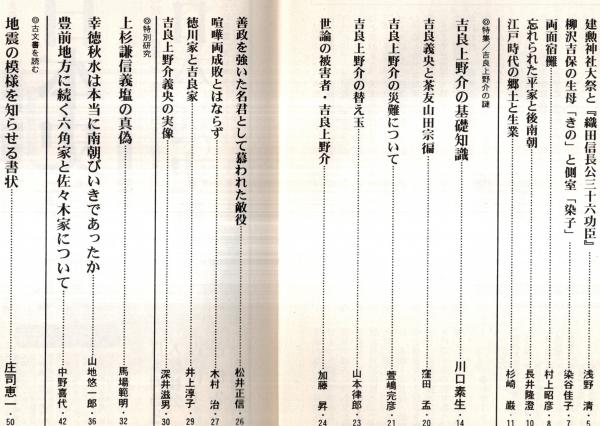 建勲神社大祭と『織田信長公三十六功臣』……浅野 清・5
柳沢吉保の生母「きの」と側室「染子」……染谷佳子・7
両面宿儺……村上昭彦・8
忘れられた平家と後南朝……長井隆澄・10
江戸時代の郷士と生業……杉崎 巌・11
◎特集/吉良上野介の謎
吉良上野介の基礎知識……川口素生・14
吉良義央と茶友山田宗徧……窪田 孟・20
吉良上野介の災難について……萱嶋完彦・21
吉良上野介の替え玉……山本律郎・23
世論の被害者・吉良上野介……加藤 昇・24
善政を強いた名君として慕われた敵役……松井正信・26
喧嘩両成敗とはならず……木村 治・27
徳川家と吉良家……井上淳子・29
吉良上野介義央の実像……深井滋男・30
◎特別研究
上杉謙信義塩の真偽……馬場範明・32
幸徳秋水は本当に南朝びいきであったか……山地悠一郎・36
豊前地方に続く六角家と佐々木家について……中野喜代・42
◎古文書を読む
地震の模様を知らせる書状……庄司恵一・50